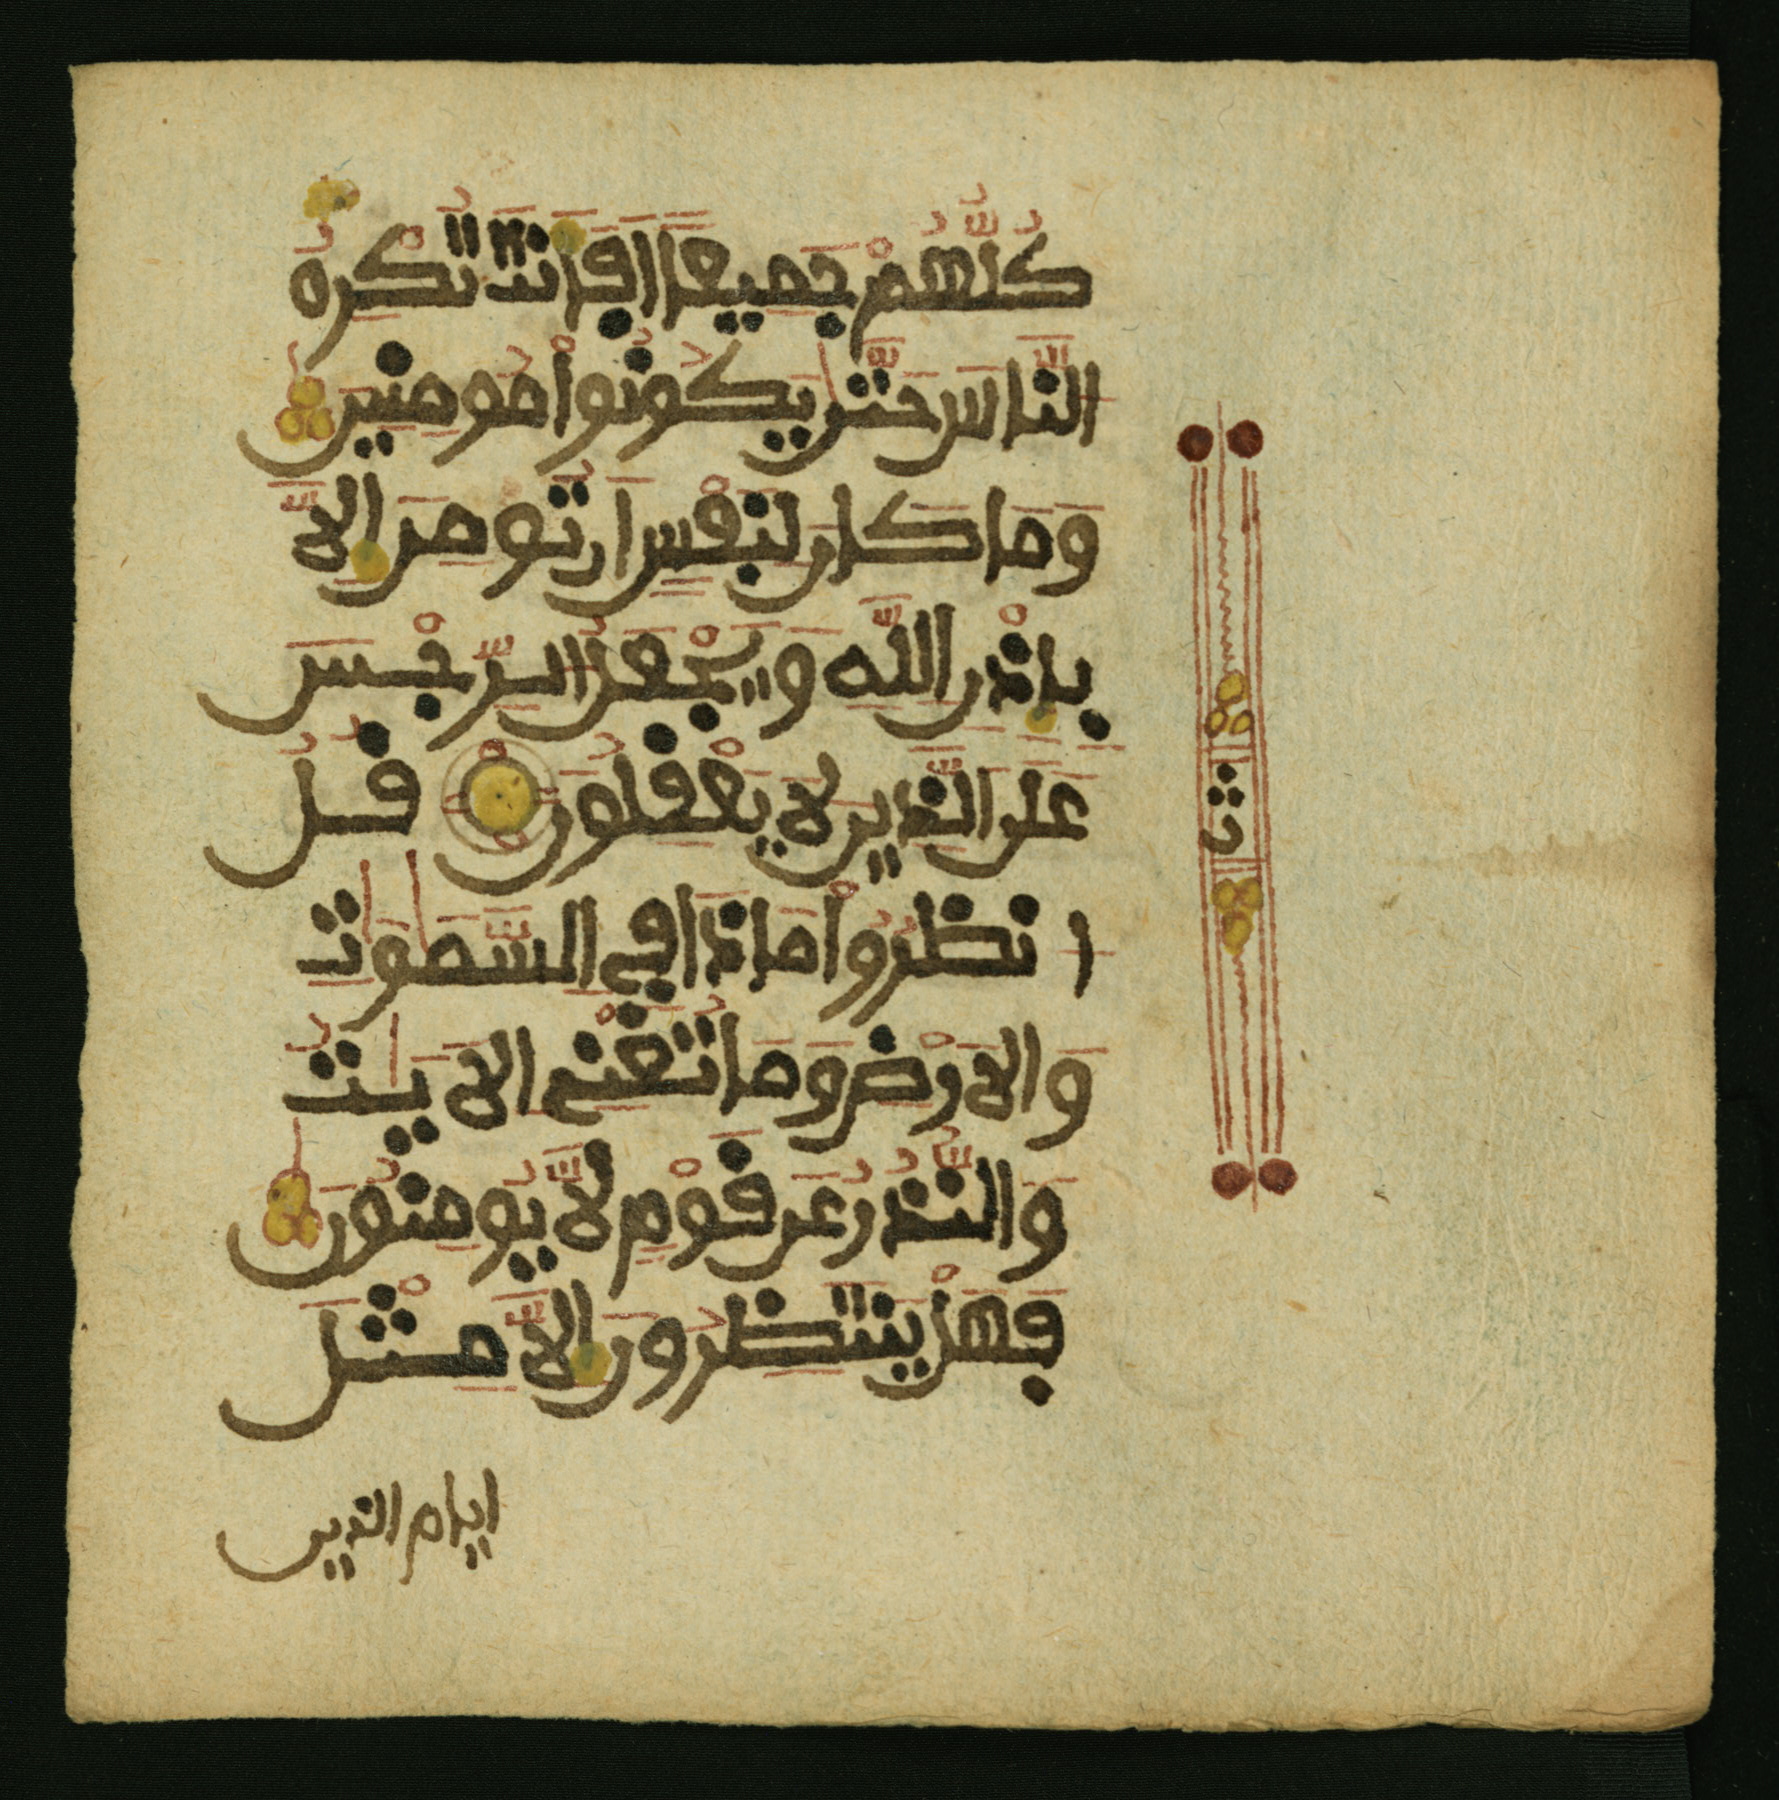 كُلُّهُمْ جَمِيعًا اَفَاَنتَ تُكْرِهُ
النَّاسَ حَتَّىٰ يَكُونُواْ مُومِنِينَ
وَمَا كَانَ لِنَفْسٍ اَن تُومِنَ إِلاَّ
بِإِذْنِ اللَّهِ وَيَجْعَلُ الرِّجْسَ
عَلَى الَّذِينَ لَا يَعْقِلُونَ قُلُ
اِ نظُرُواْ مَاذَا فِي السَّمَٰوَٰتِ
وَالَارْضِ وَمَا تُغْنِي الَايَٰتُ
وَالنُّذُرُ عَن قَوْمٍ لاَّ يُومِنُونَ
فَهَلْ يَنتَظِرُونَ إِلاَّ مِثْلَ
ايام الذين
ث